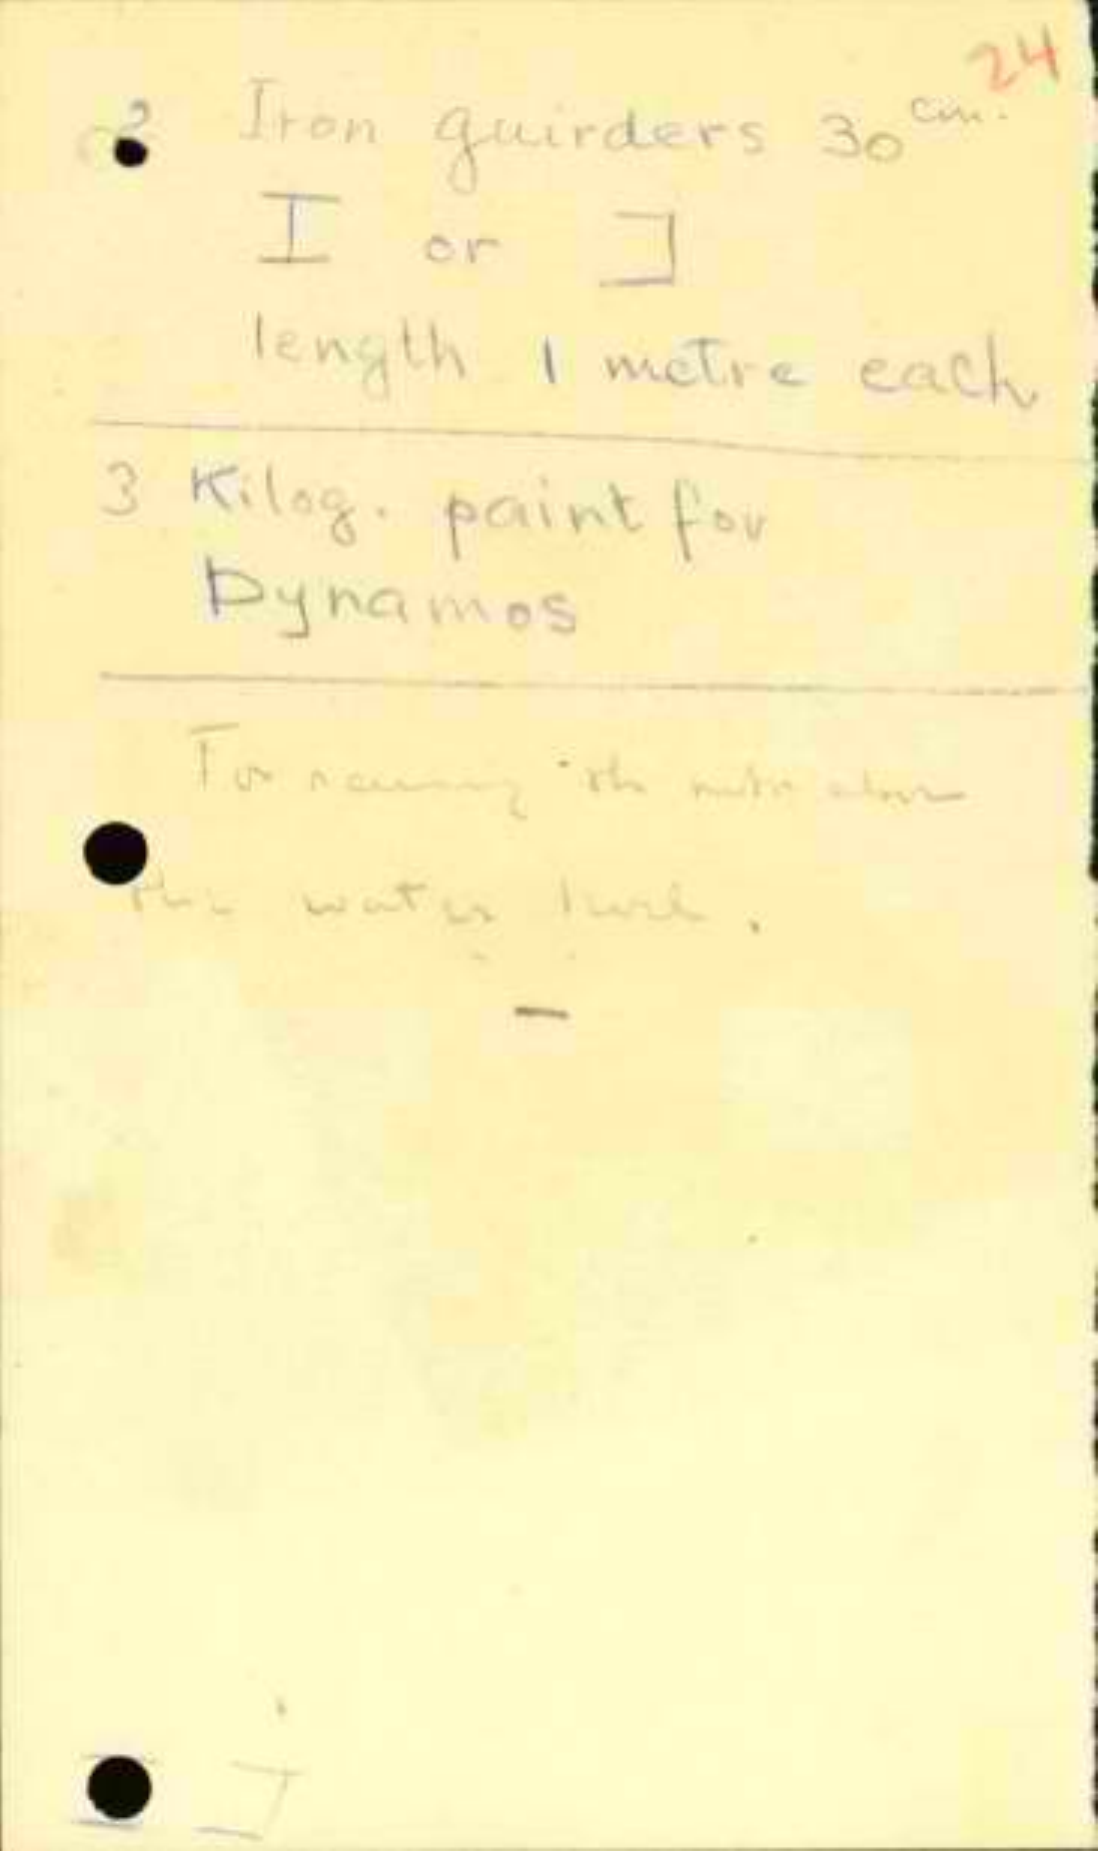 24
Iron guirders 30 cm.
I or
length 1 metre each
3 Kilog. paint for
Dynamos
For the
the water level.